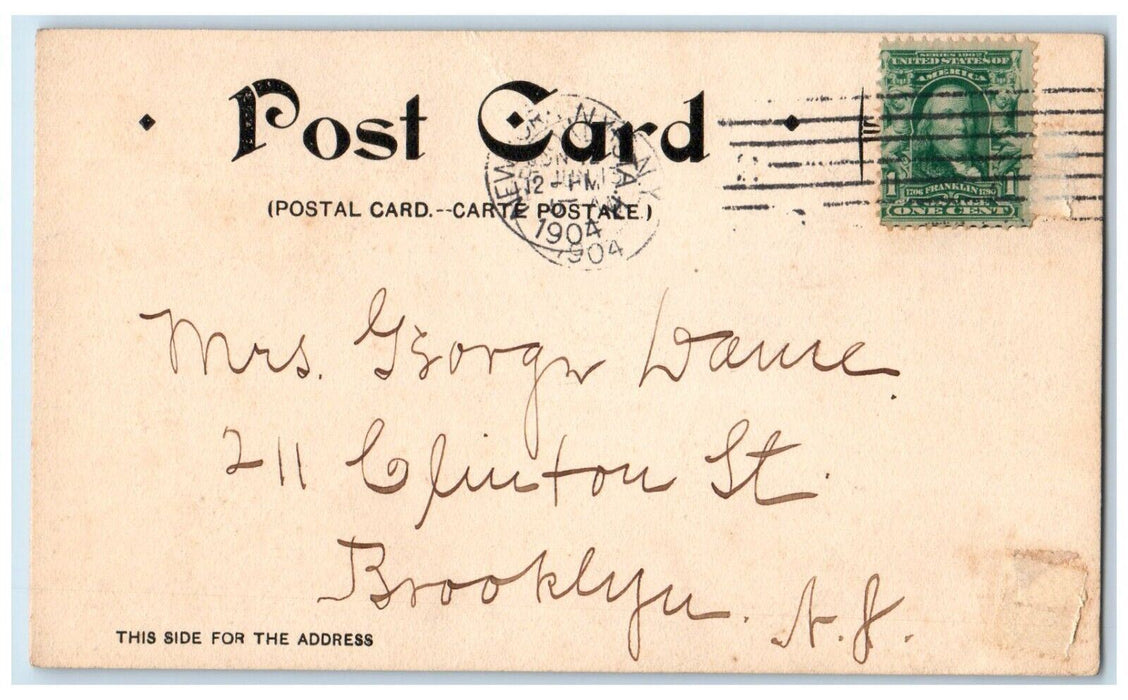 Post Card
(POSTAL CARD.--CARTE POSTALE.)
NEW YORK, N.Y.
JUN
12 - PM
1904
1904
SERIES 1902
UNITED STATES OF
AMERICA
1706 FRANKLIN 1790
1 POSTAGE 1
ONE CENT
Mrs. George Dame.
211 Clinton St.
Brooklyn. N.Y.
THIS SIDE FOR THE ADDRESS